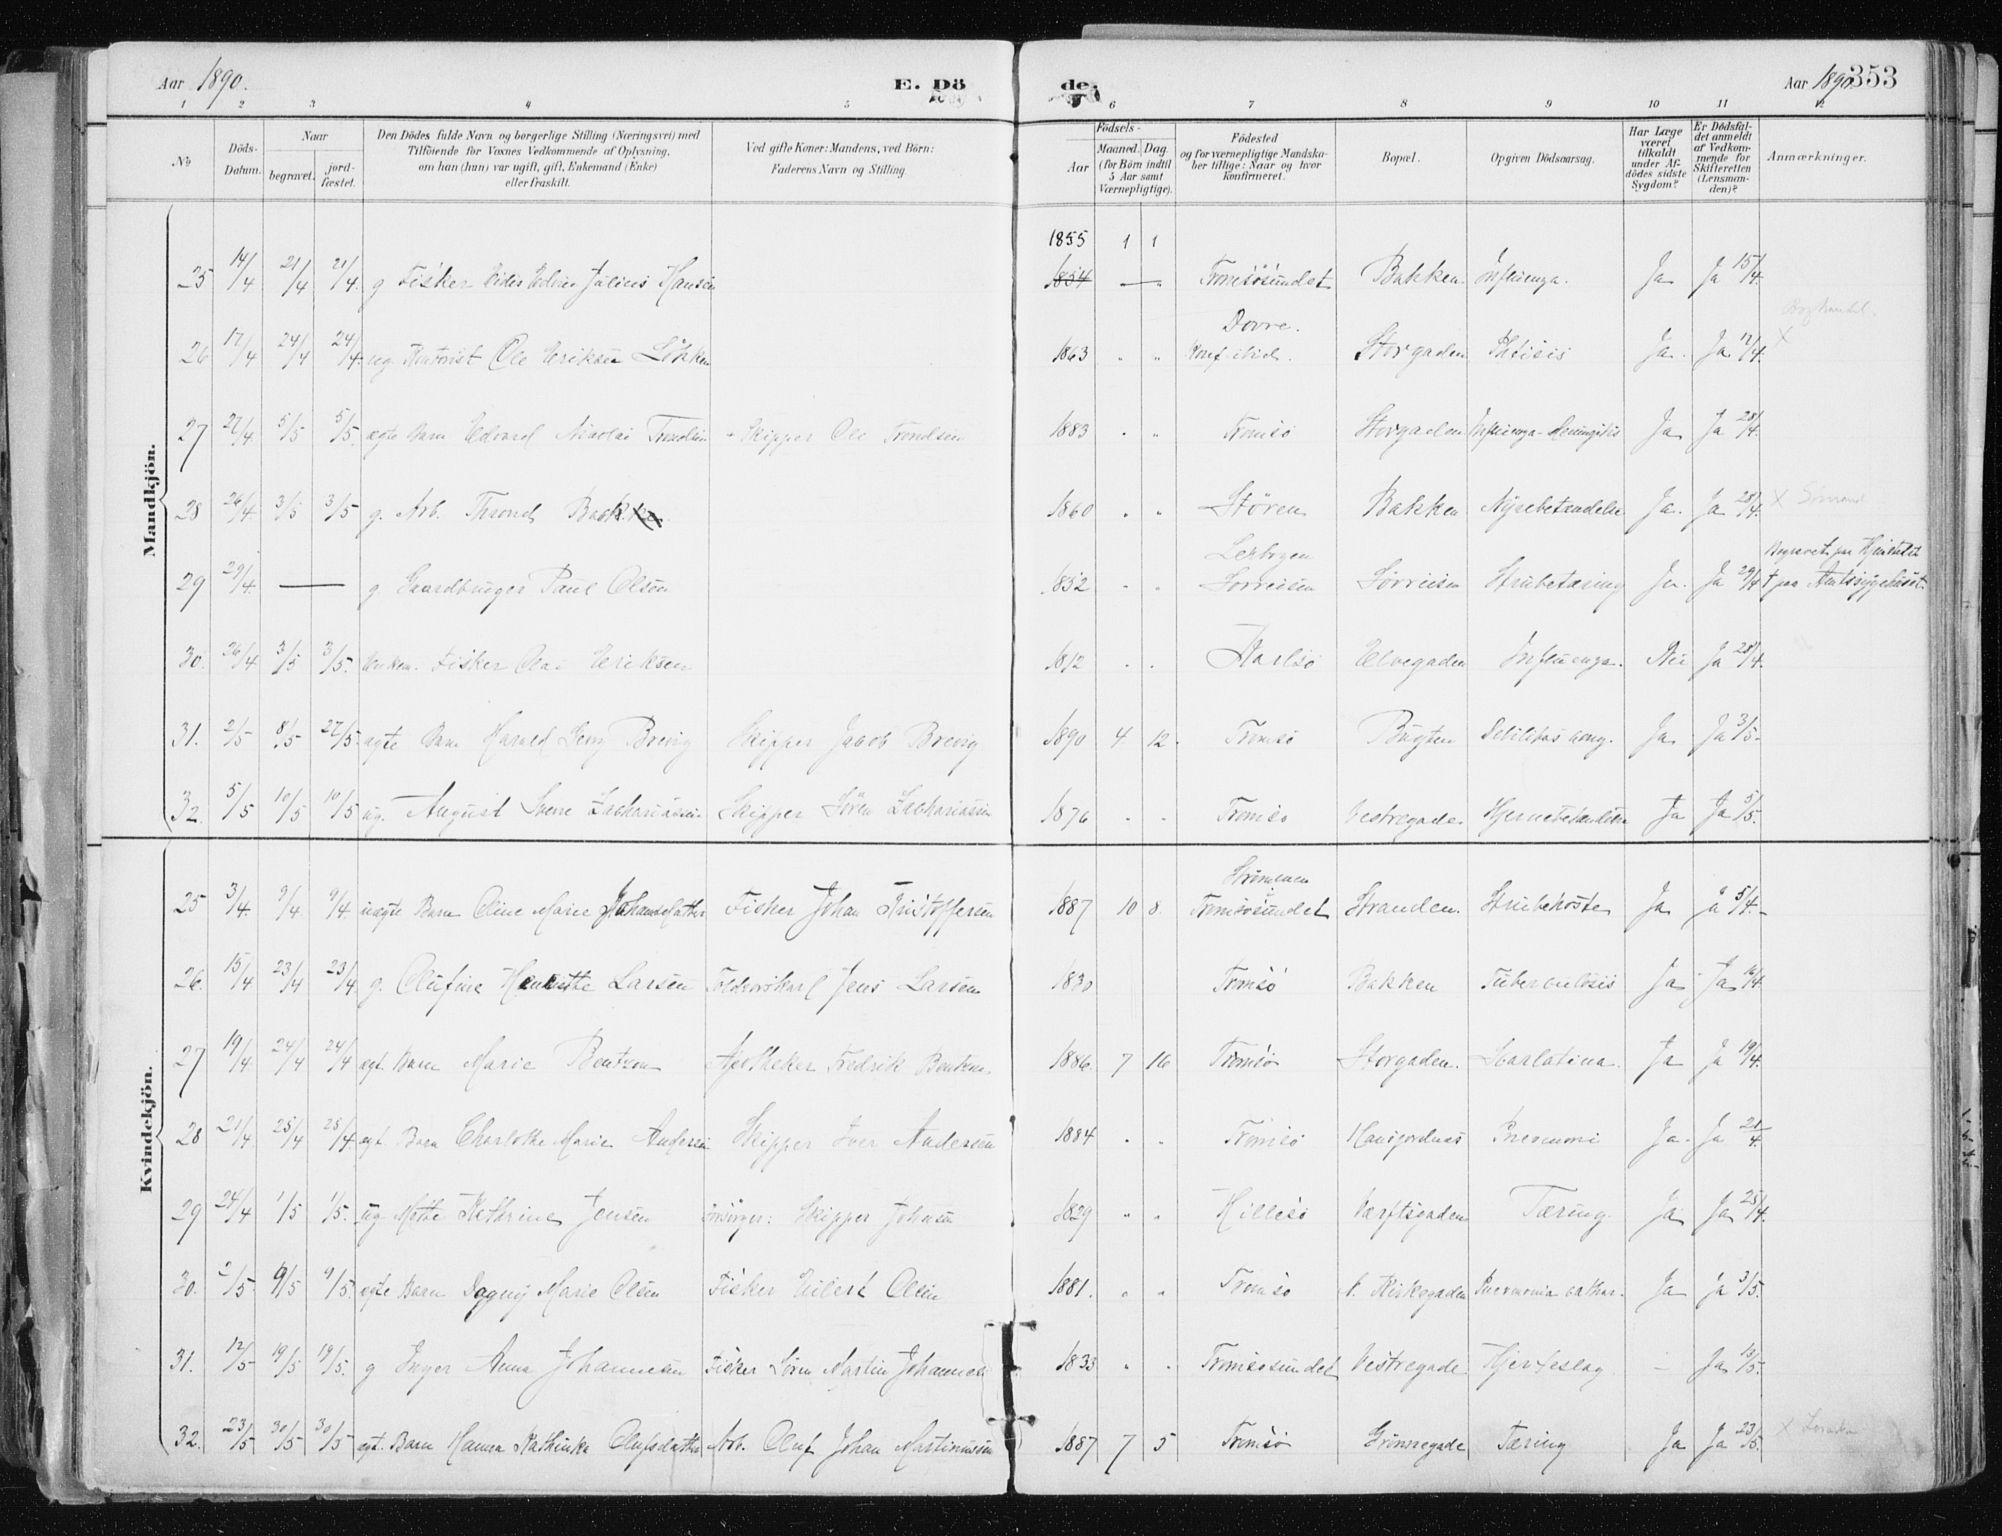 Aar 1890. E. Dö de. Aar 1890 353
1 2 3 4 5 6 7 8 9 10 11 12
No Döds-Datum. Naar begravet. jord-fæstet. Den Dödes fulde Navn og borgerlige Stilling (Næringsvei) med Tilföiende for Voxnes Vedkommende af Oplysning, om han (hun) var ugift, gift, Enkemand (Enke) eller fraskilt. Ved gifte Koner: Mandens, ved Börn: Faderens Navn og Stilling. Födsels- Aar Maaned. Dag. (for Börn indtil 5 Aar samt Værnepligtige). Födested og for værnepligtige Mandska-ber tillige: Naar og hvor konfirmeret. Bopæl. Opgiven Dödsaarsag. Har Læge været tilkaldt under Af-dödes sidste Sygdom? Er Dödsfal-det anmeldt af Vedkom-mende for Skifteretten (Lensman-den)? Anmærkninger.
Mandkjön.
1855 1 1
25 14/4 21/4 21/4. g Fisker Julius Hansen 1854 — Tromsösundet Bakken. Influenza. Ja Ja 15/4.
Dovre.
26 17/4 24/4 24/4. ug. Ole Eriksen Lökken 1863 " " Konf. ibid. Storgaden Phtisis Ja. Ja 17/4. X
27 27/4. 5/5 5/5. ægte Barn Edvard Nicolai Trondsen Skipper Ole Trondsen 1883 " " Tromsö Storgaden Influenza-Meningitis Ja Ja 28/4.
28 26/4. 3/5 3/5 g. Arb. Thrond Bakken 1860 " " Stören Bakken Nyrebetændelse Ja. Ja 28/4. X Sömand
29 29/4. — g. Gaardbruger Paul Olsen 1852 " " Sorreisen Sörreisen Strubetæring Ja. Ja 29/4 Begravet paa Hjemstedet † paa Amtssygehuset.
30. 26/4 3/5 3/5. Enkem. Fisker Olai Eriksen 1812 " " Karlsö Elvegaden Influenza. Nei Ja 28/4.
31. 2/5 8/5 27/5. ægte Barn Harald Brevig Skipper Jacob Brevig 1890 4 12. Tromsö Bugten Debilitas cong. Ja Ja 3/5.
32. 5/5 10/5 10/5 ug. August Sverre Zachariassen Skipper Sören Zachariassen 1876 " " Tromsö Vestregade Hjernebetændelse Ja Ja 5/5.
Kvindekjön.
Strömmen
25 3/4. 9/4. 9/4 uægte Barn Oline Marie Johansdatter Fisker Johan Kristoffersen 1887 10 8. Tromsösundet Stranden. Strubehoste Ja Ja 5/4.
26. 15/4 23/4 23/4 g. Olufine Henriette Larsen Toldrorskarl Jens Larsen 1830 Tromsö Bakken Tuberculosis Ja Ja 16/4.
27 19/4 24/4 24/4 egt. Barn Marie Bentzen Apotheker Fredrik Bentzen 1886. 7 16 Tromsö Storgaden. Scarlatina. Ja Ja 19/4.
28 21/4. 25/4 25/4. egt. Barn Charlotte Marie Andersen Skipper Iver Andersen 1884 " " Tromsö Hansjordnæs Pneumoni Ja. Ja 21/4.
29 24/4 1/5 1/5. ug. Mette Kathrine Jensen Forsörger: Skipper Johnsen 1829 " " Hillesö Værftsgaden Tæring. Ja Ja 25/4.
30. 2/5. 9/5 9/5. egte Barn Dagny Marie Olsen Fisker Eilert Olsen 1881. " " Tromsö N. Kirkegaden Pneumonia cathar. Ja Ja 3/5.
31. 12/5 19/5 19/5. g Inger Anna Johannesen Fisker Sören Martin Johannes 1833 " " Tromsösundet Vestregade Hjerteslag — Ja 13/5.
32. 23/5 30/5 30/5 egt. Barn Hanna Kathinka Olufsdatter Arb. Oluf Johan Martinussen 1887 7 5 Tromsö Grönnegade Tæring Ja Ja 23/5. X